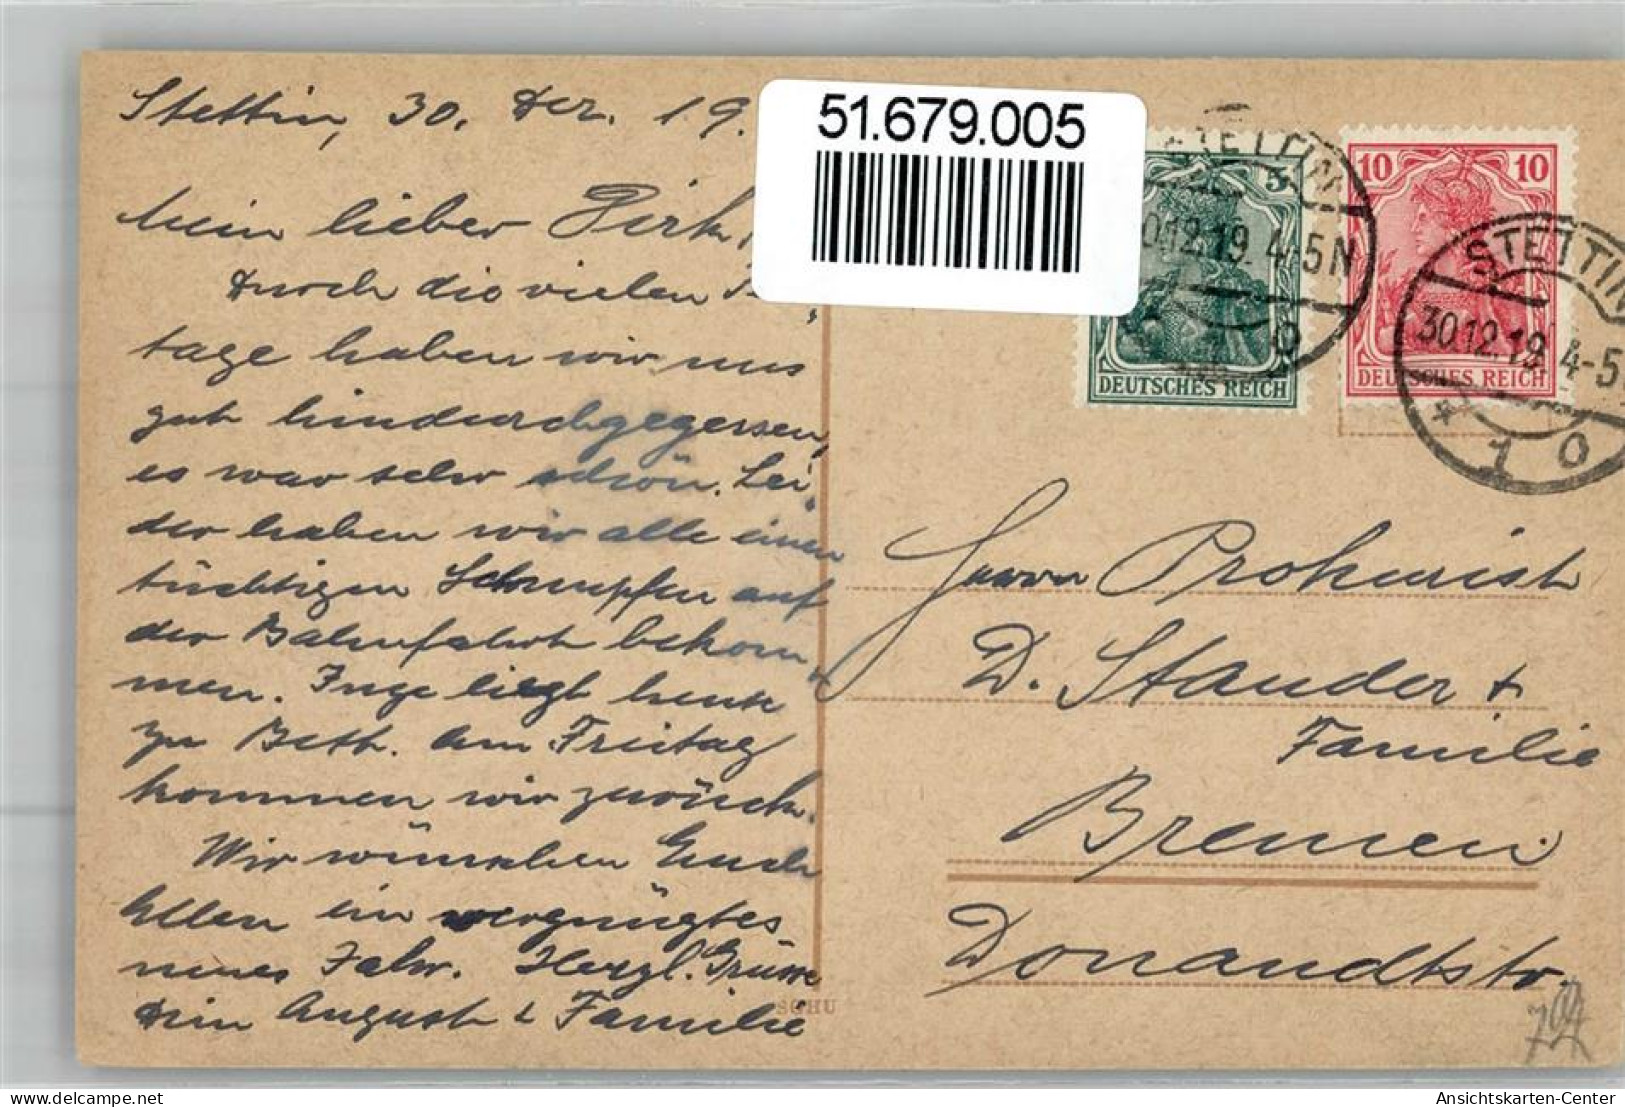 Stettin, 30. Dez. 19.
Mein lieber Dirk,
Durch die vielen
tage haben wir uns
gut hindurchgegessen,
es war sehr schön. Lei-
der haben wir alle einen
tüchtigen Schnupfen auf
der Bahnfahrt bekom-
men. Inge liegt heute
zu Bett. Am Freitag
kommen wir zurück.
Wir wünschen Euch
allen ein vergnügtes
neues Jahr. Herzl. Grüsse
Dein August & Familie
SCHU
51.679.005
5
DEUTSCHES REICH
STETTIN
30.12.19. 4-5N
1 o
10 10
DEUTSCHES REICH
STETTIN
30.12.19. 4-5
* 1 o
Herrn Prokurist
D. Stander &
Familie
Bremen.
Donandtstr.
Ansichtskarten-Center